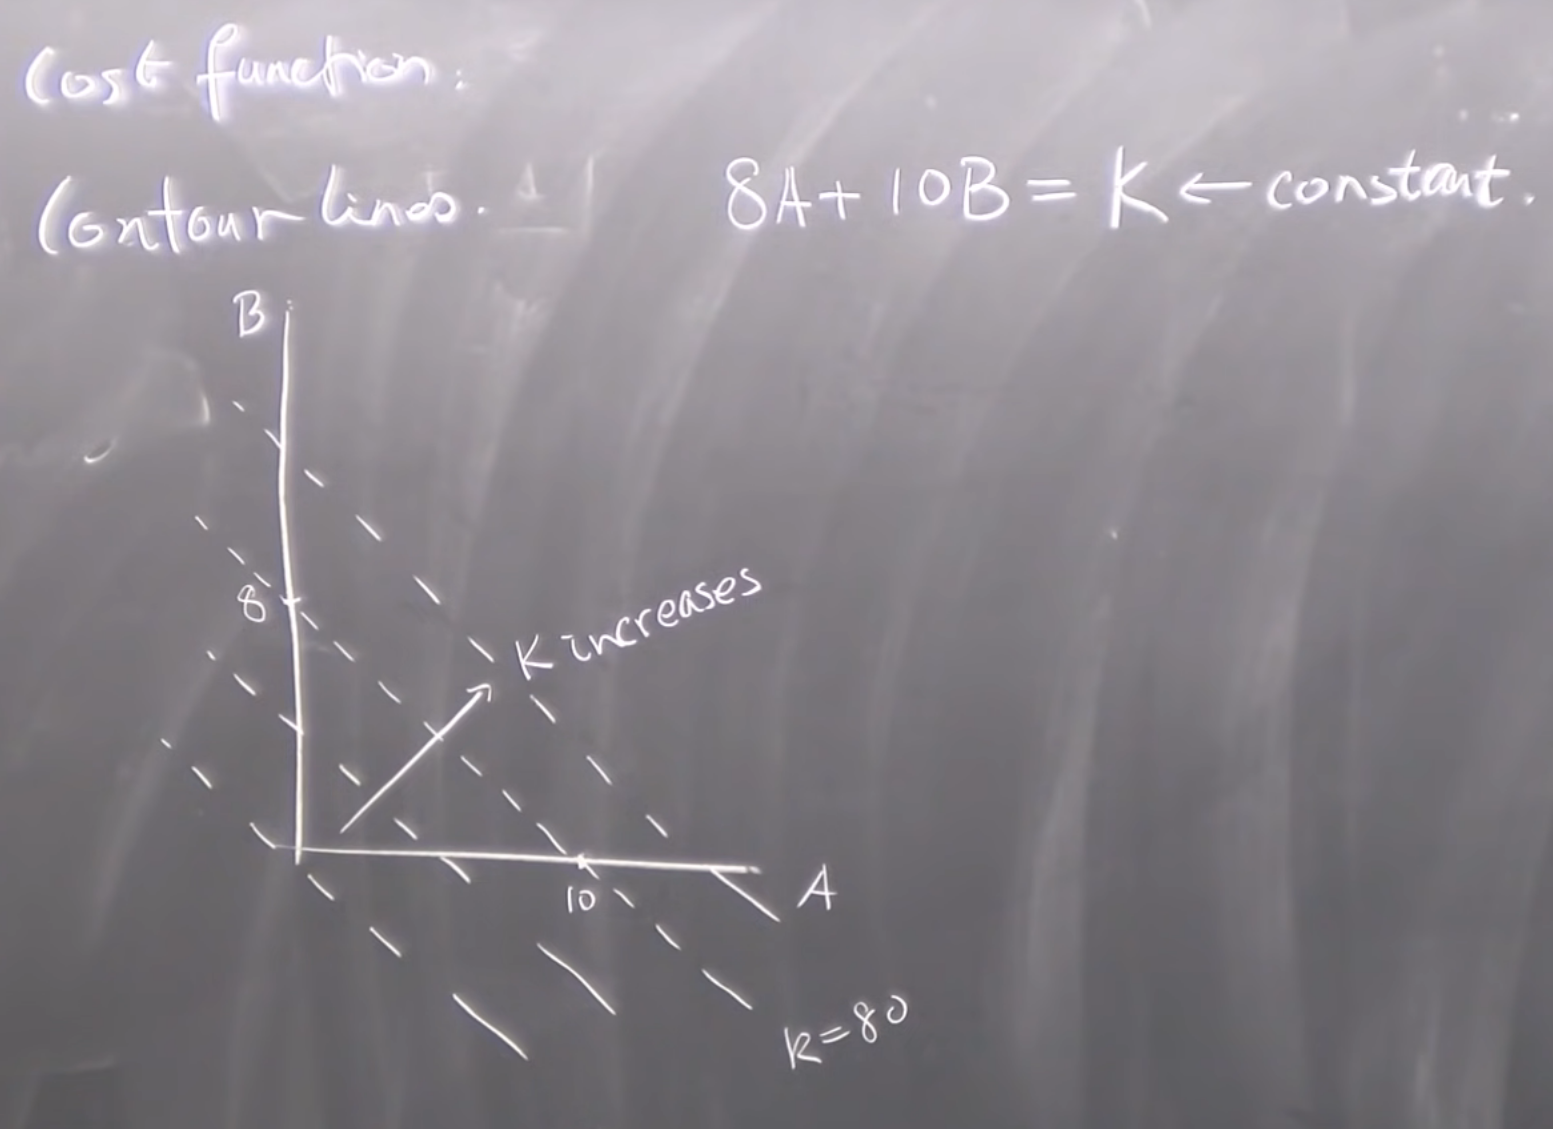 Cost function:
Contour lines.
8A + 10B = K ← constant.
B
8
K increases
10
A
K=80